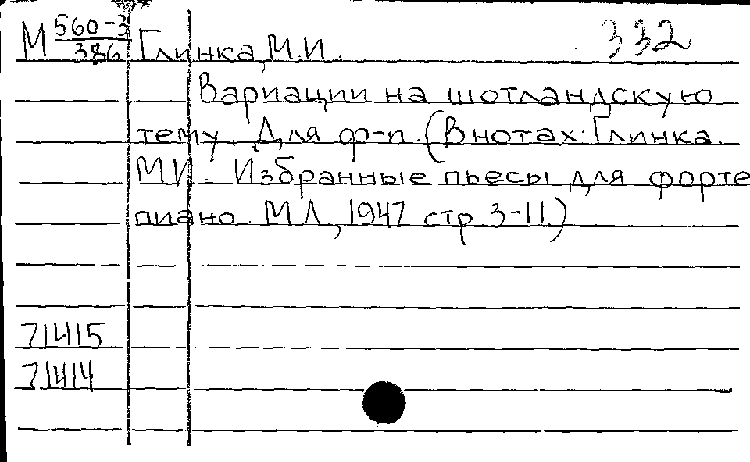 М 560-3/386 Глинка, М.И. 332
Вариации на шотландскую
тему. Для ф-п. (В нотах: Глинка
М.И. Избранные пьесы для форте
пиано. М Л, 1947 стр 3-11.)
71415
71414